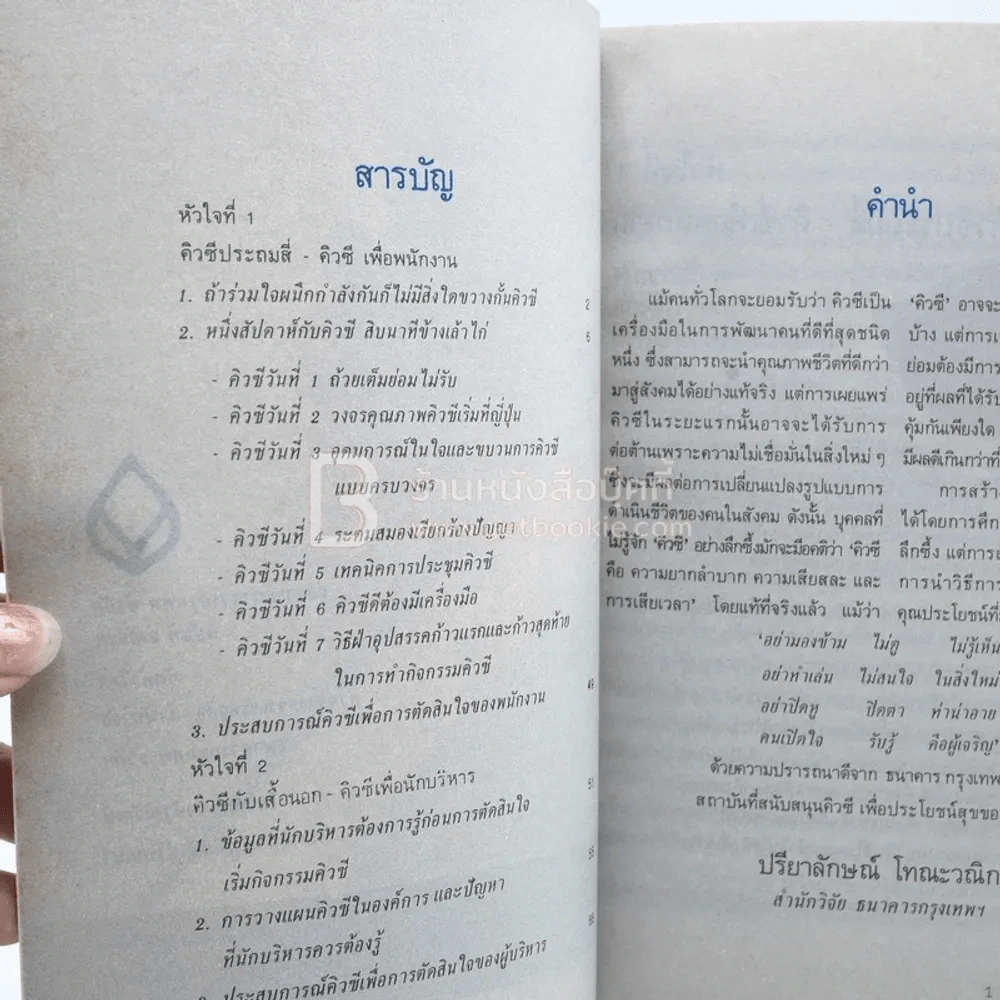 สารบัญ
หัวใจที่ 1
คิวซีประถมสี่ - คิวซี เพื่อพนักงาน
1. ถ้าร่วมใจผนึกกำลังกันก็ไม่มีสิ่งใดขวางกั้นคิวซี 2
2. หนึ่งสัปดาห์กับคิวซี สิบนาทีข้างเล้าไก่ 6
- คิวซีวันที่ 1 ถ้วยเต็มย่อมไม่รับ
- คิวซีวันที่ 2 วงจรคุณภาพคิวซีเริ่มที่ญี่ปุ่น
- คิวซีวันที่ 3 อุดมการณ์ในใจและขบวนการคิวซี
แบบครบวงจร
- คิวซีวันที่ 4 ระดมสมองเรียกร้องปัญญา
- คิวซีวันที่ 5 เทคนิคการประชุมคิวซี
- คิวซีวันที่ 6 คิวซีดีต้องมีเครื่องมือ
- คิวซีวันที่ 7 วิธีฝ่าอุปสรรคก้าวแรกและก้าวสุดท้าย
ในการทำกิจกรรมคิวซี
3. ประสบการณ์คิวซีเพื่อการตัดสินใจของพนักงาน 49
หัวใจที่ 2
คิวซีกับเสื้อนอก - คิวซีเพื่อนักบริหาร 51
1. ข้อมูลที่นักบริหารต้องการรู้ก่อนการตัดสินใจ
เริ่มกิจกรรมคิวซี 55
2. การวางแผนคิวซีในองค์การ และปัญหา
ที่นักบริหารควรต้องรู้
ประสบการณ์คิวซีเพื่อการตัดสินใจของผู้บริหาร
ร้านหนังสือบุ๊คที่
คำนำ
แม้คนทั่วโลกจะยอมรับว่า คิวซีเป็น
เครื่องมือในการพัฒนาคนที่ดีที่สุดชนิด
หนึ่ง ซึ่งสามารถจะนำคุณภาพชีวิตที่ดีกว่า
มาสู่สังคมได้อย่างแท้จริง แต่การเผยแพร่
คิวซีในระยะแรกนั้นอาจจะได้รับการ
ต่อต้านเพราะความไม่เชื่อมั่นในสิ่งใหม่ ๆ
ซึ่งจะมีผลต่อการเปลี่ยนแปลงรูปแบบการ
ดำเนินชีวิตของคนในสังคม ดังนั้น บุคคลที่
ไม่รู้จัก ‘คิวซี’ อย่างลึกซึ้งมักจะมีอคติว่า ‘คิวซี
คือ ความยากลำบาก ความเสียสละ และ
การเสียเวลา’ โดยแท้ที่จริงแล้ว แม้ว่า
‘คิวซี’ อาจจะ
บ้าง แต่การ
ย่อมต้องมีการ
อยู่ที่ผลที่ได้รับ
คุ้มกันเพียงใด
มีผลดีเกินกว่าที่
การสร้าง
ได้โดยการศึก
ลึกซึ้ง แต่การ
การนำวิธีการ
คุณประโยชน์ที่
‘อย่ามองข้าม ไม่ดู ไม่รู้เห็น
อย่าทำเล่น ไม่สนใจ ในสิ่งใหม่
อย่าปิดหู ปิดตา ท่าน่าอาย
คนเปิดใจ รับรู้ คือผู้เจริญ’
ด้วยความปรารถนาดีจาก ธนาคาร กรุงเทพ
สถาบันที่สนับสนุนคิวซี เพื่อประโยชน์สุขขอ
ปรียาลักษณ์ โทณะวณิก
สำนักวิจัย ธนาคารกรุงเทพฯ
1